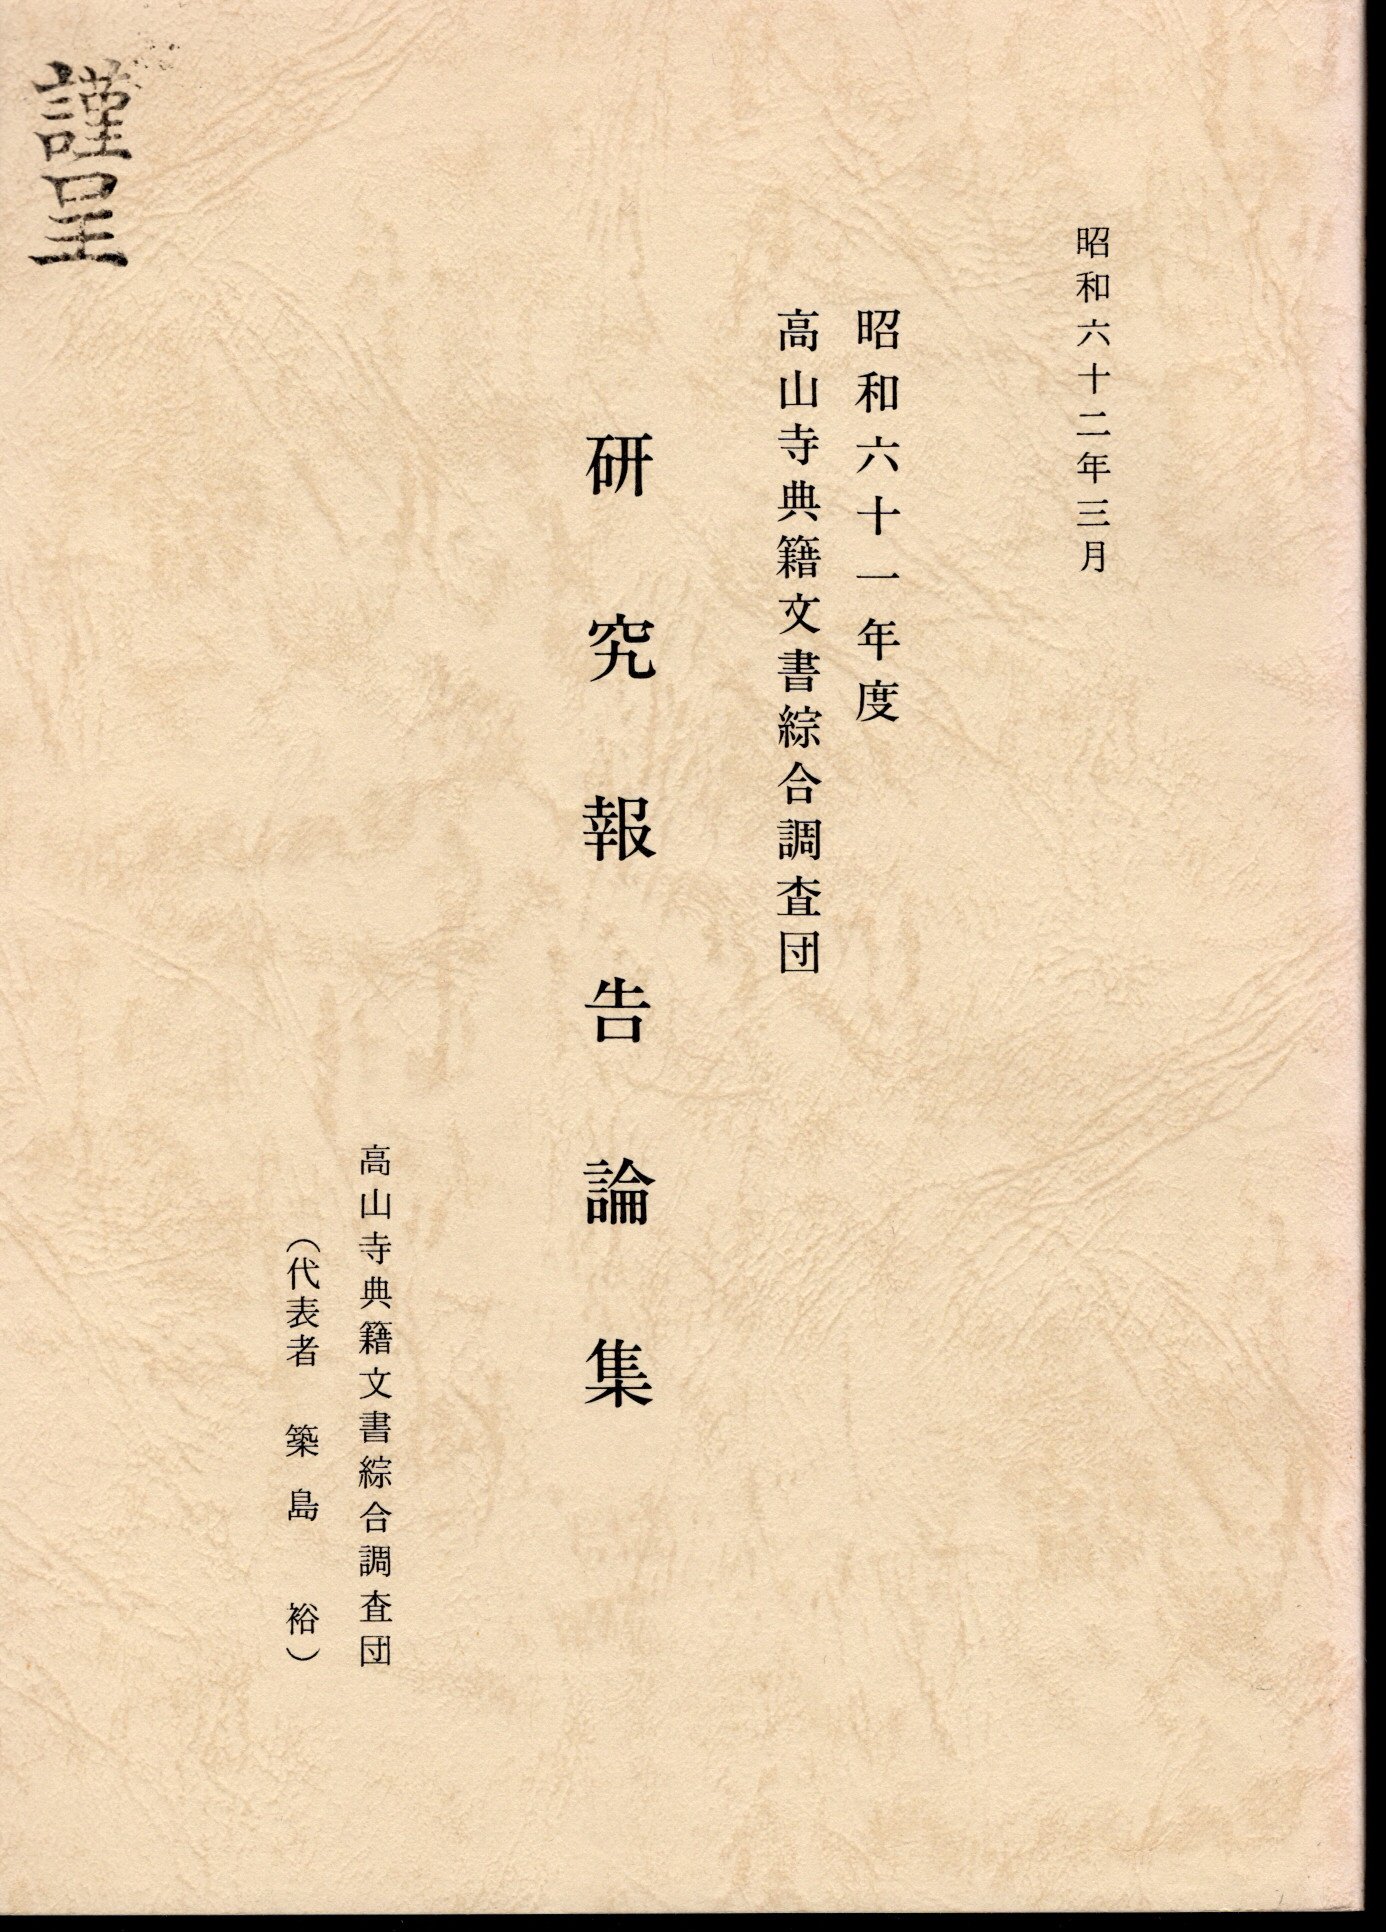 昭和六十二年三月
昭和六十一年度
高山寺典籍文書綜合調査団
研究報告論集
高山寺典籍文書綜合調査団
（代表者　築島　裕）
謹呈